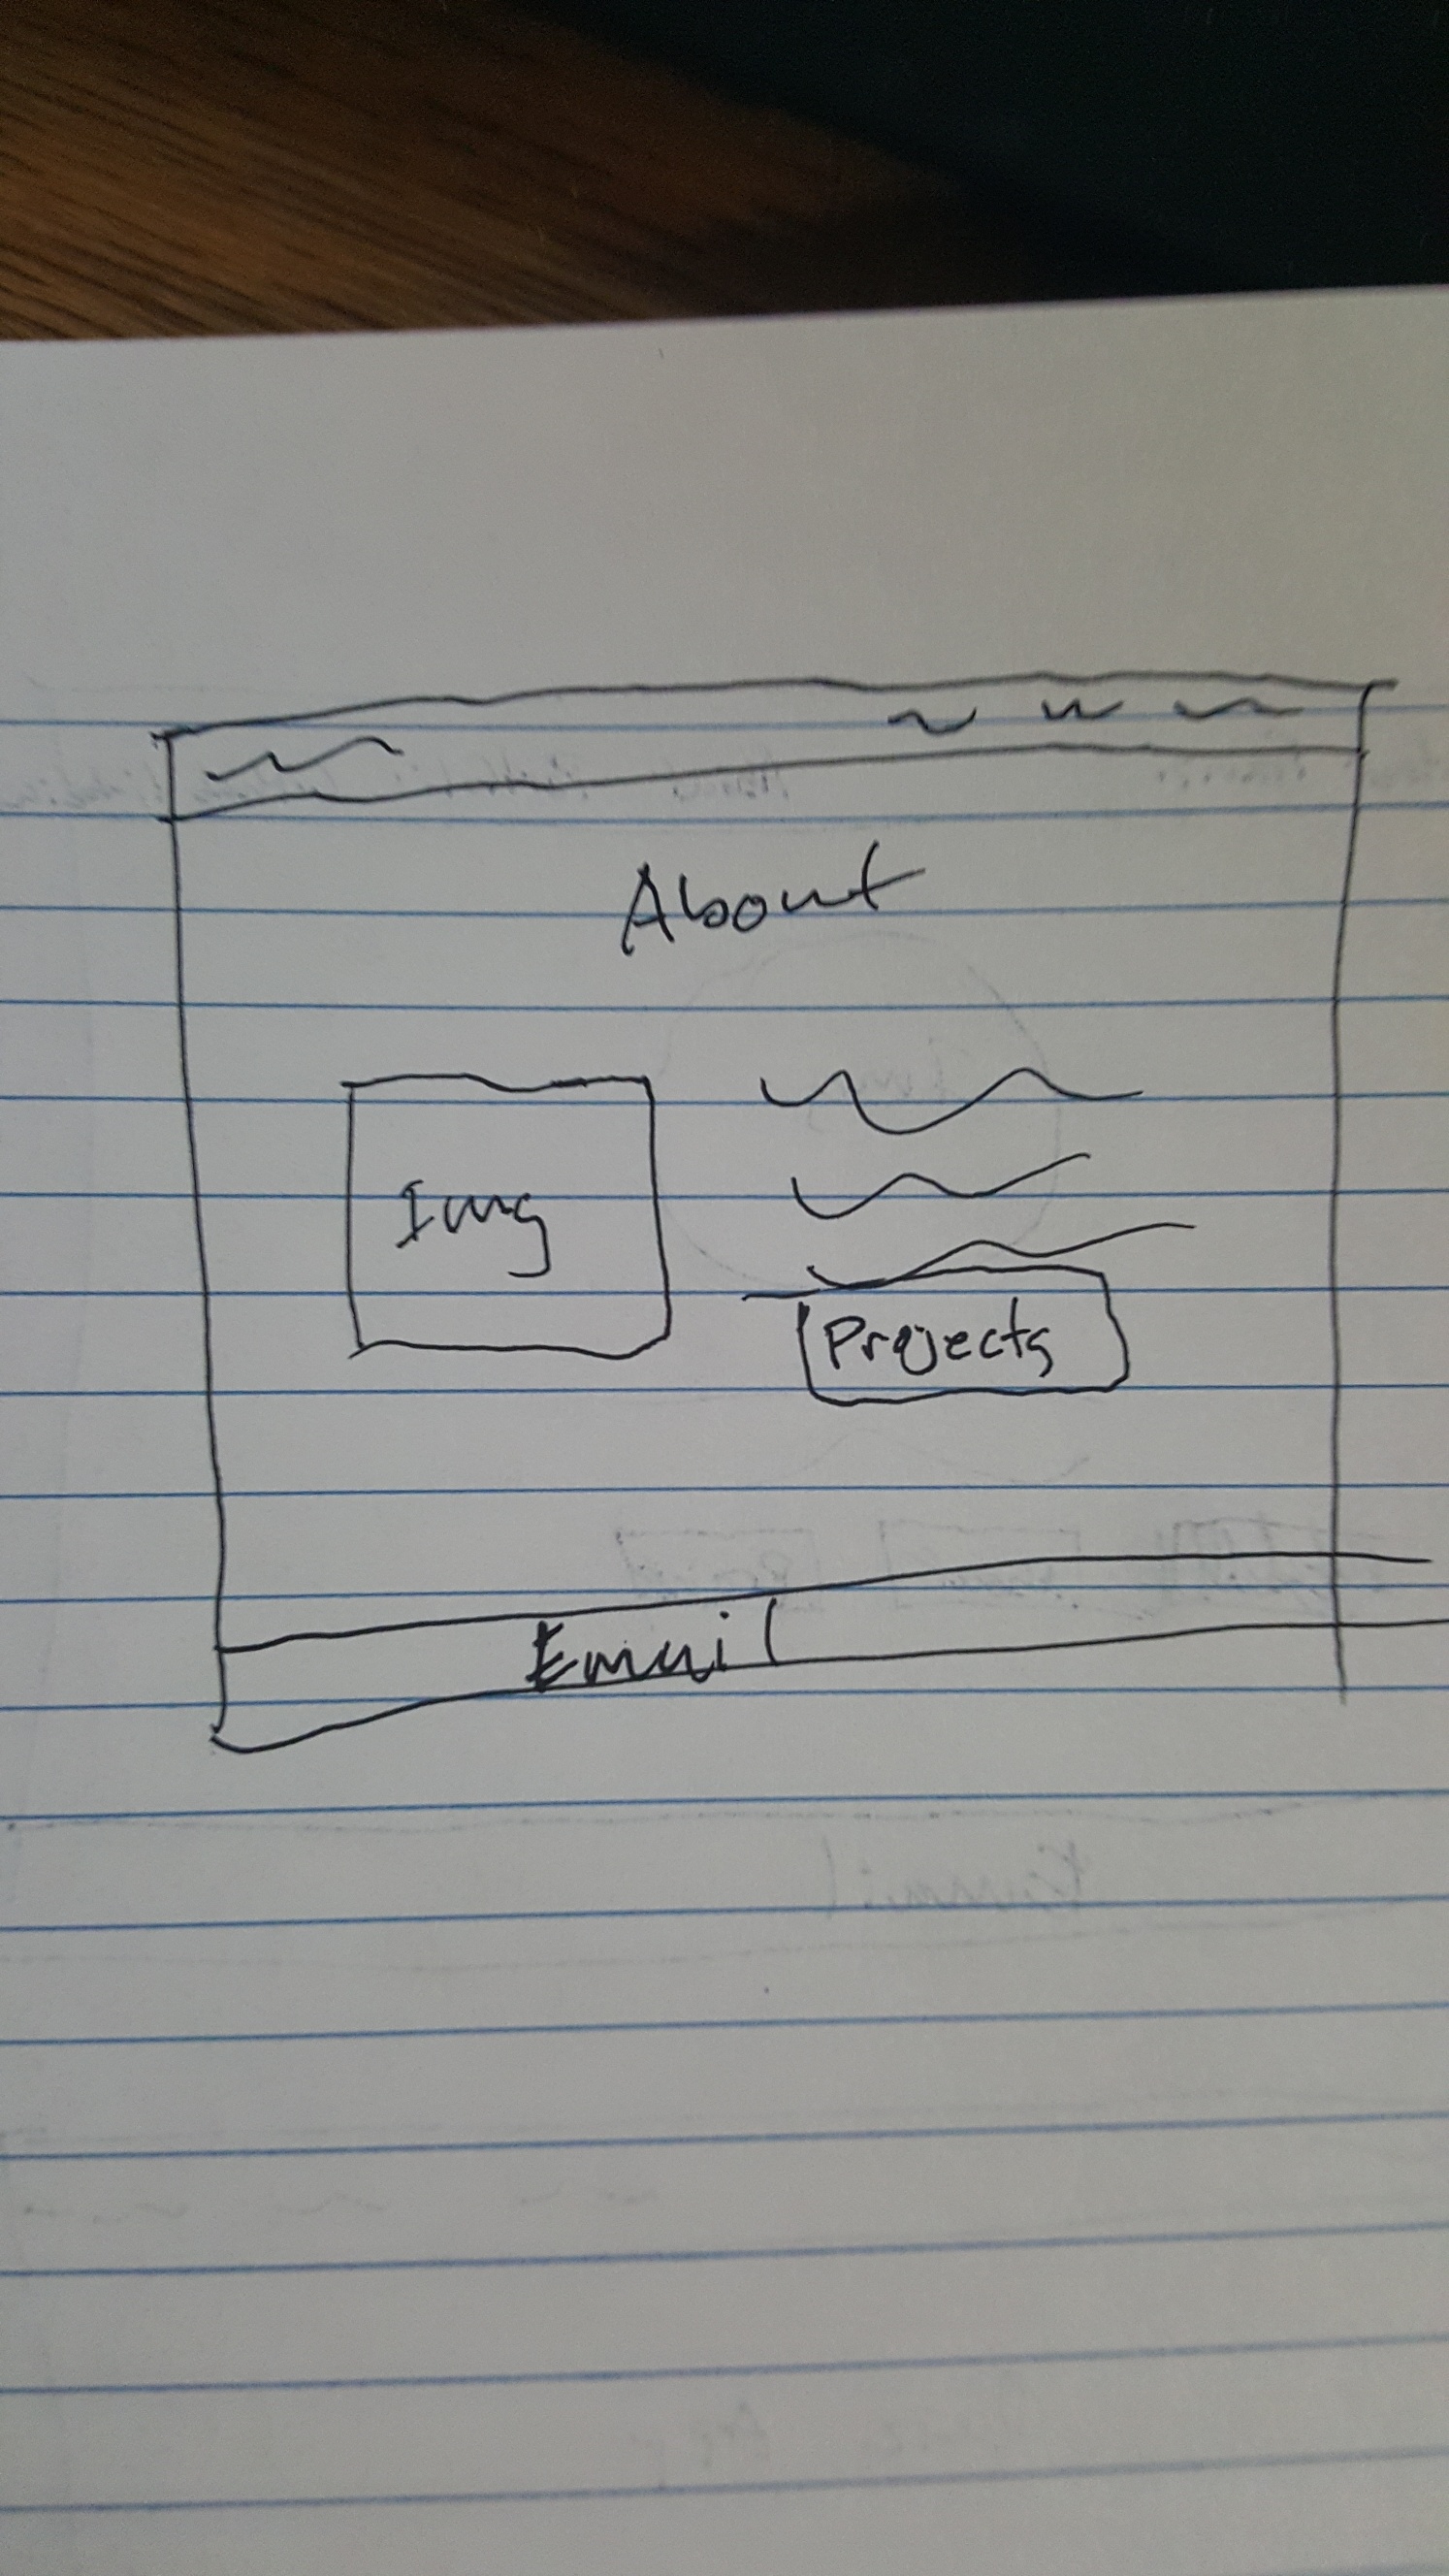 About
Img
Projects
Email